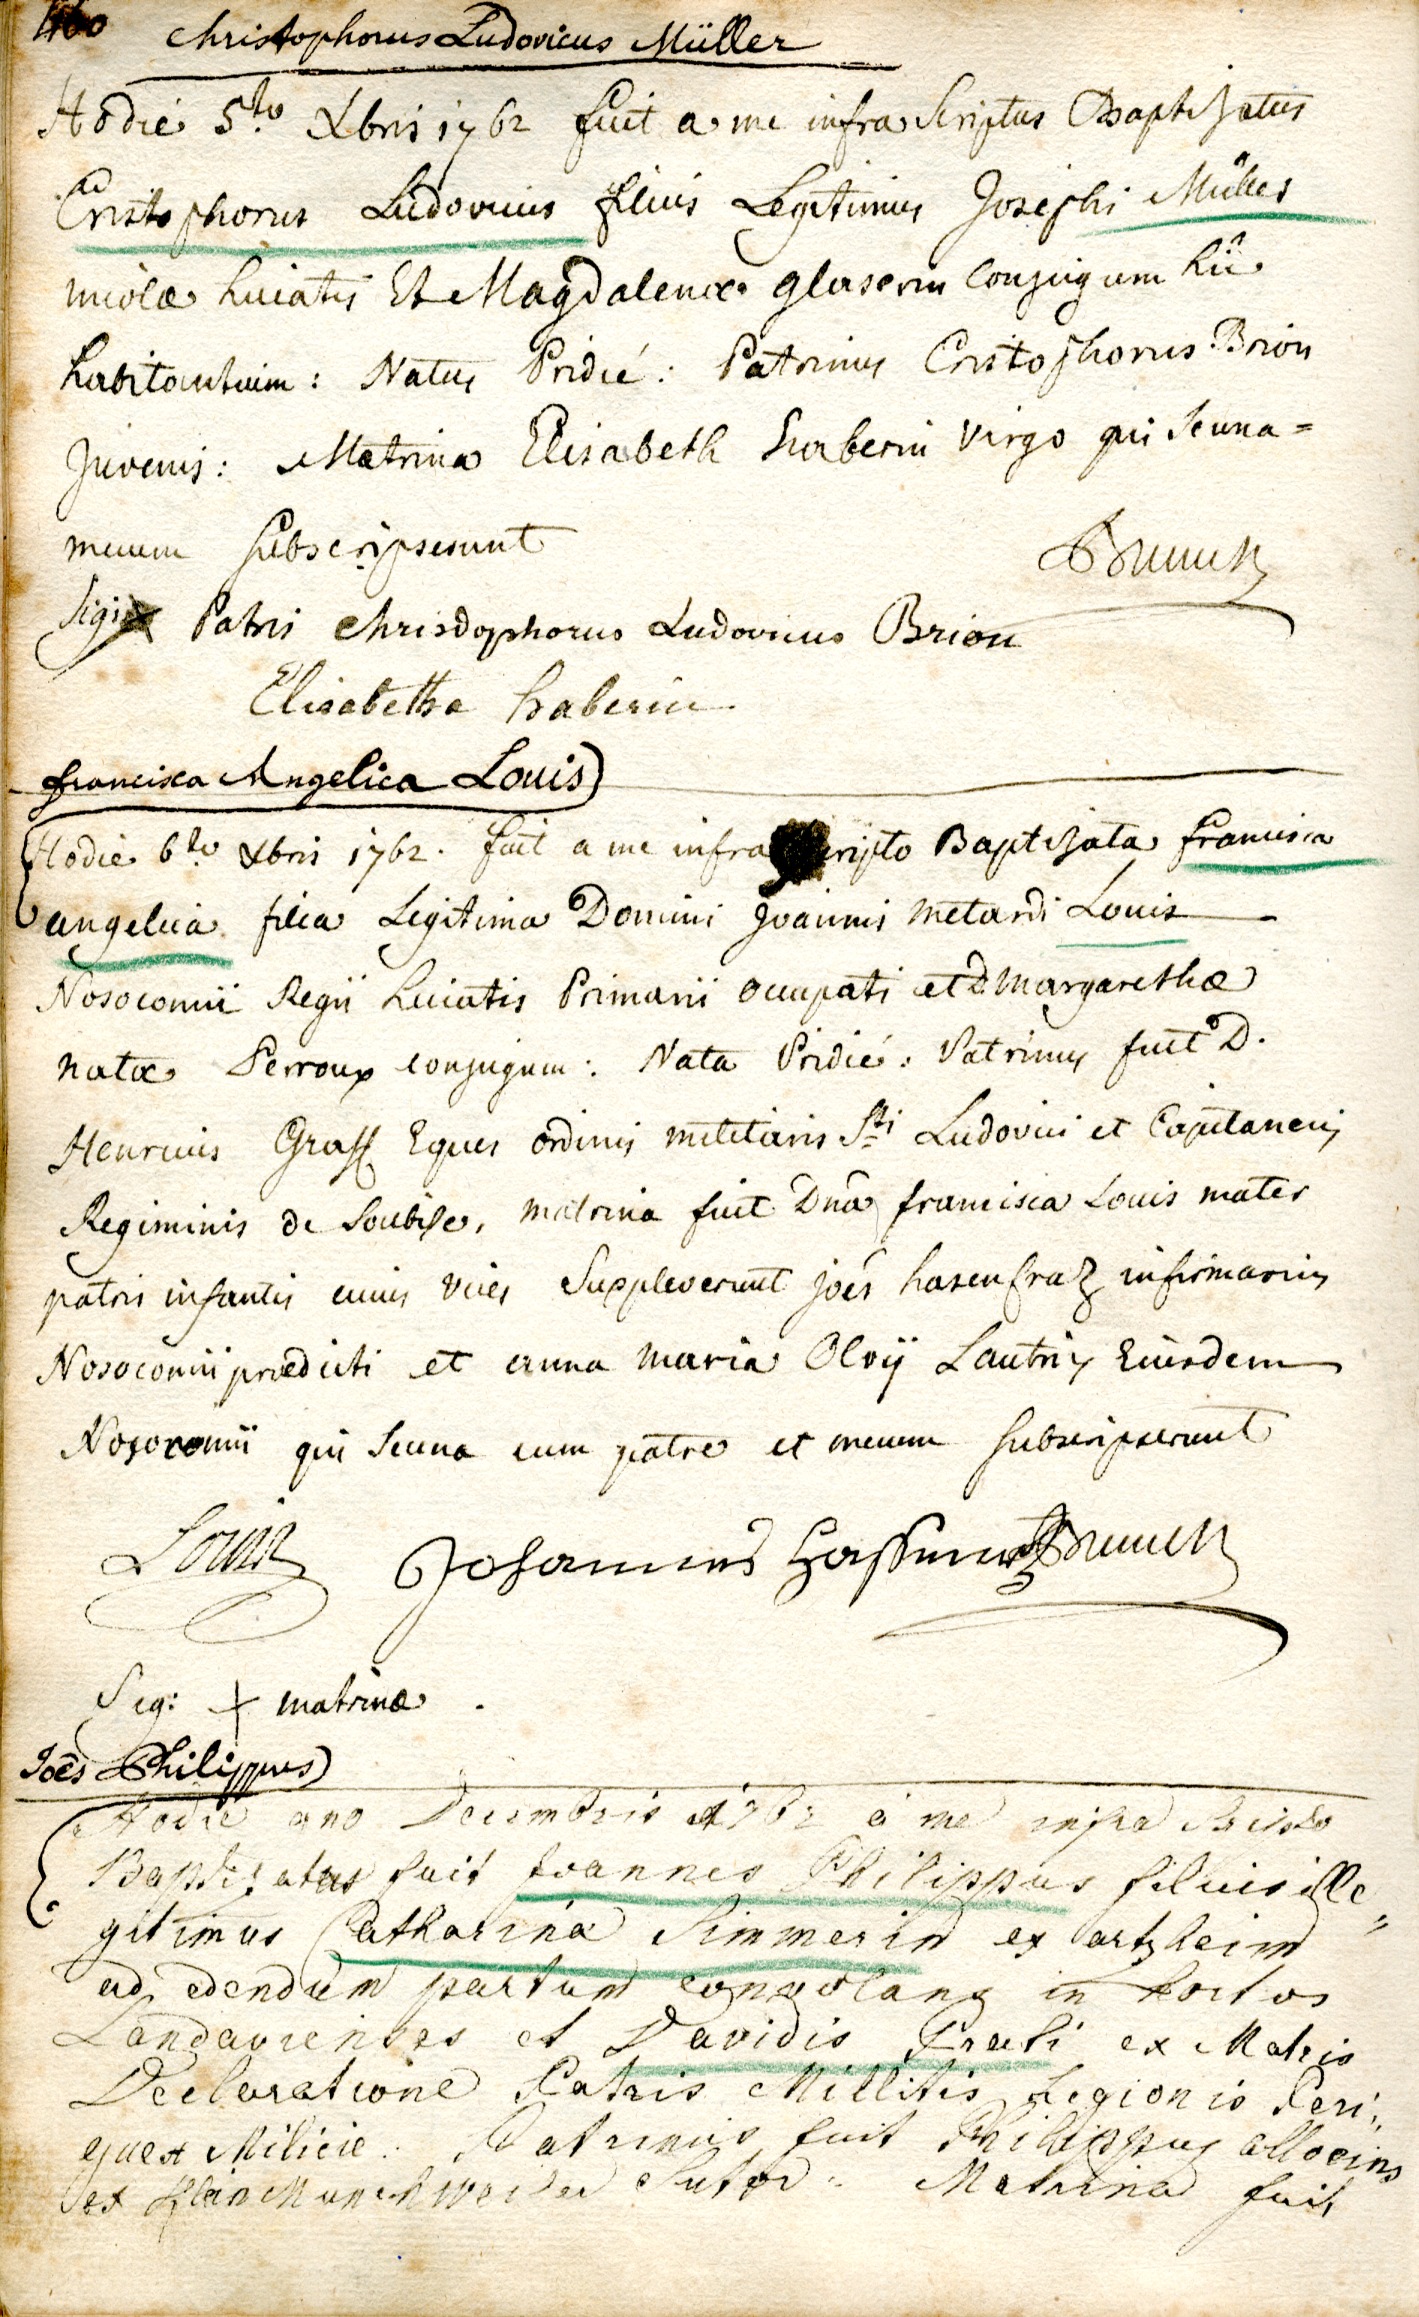 460 Christophorus Ludovicus Müller
Hodie 5to Xbris 1762 fuit a me infra Scriptus Baptizatus
Cristophorus Ludovicus filius Legitimus Josephi Müller
incolæ huiatis Et Magdalenæ glaserin Conjugum hîc
habitantium : Natus Pridié : Patrinus Cristophorus Brion
Juvenis : Matrina Elisabeth haberin virgo qui Seuna=
mecum Subscripserunt
Brunck
Sig: Patris Chrisdophorus Ludovicus Brion
Elisabetha haberin
francisca Angelica Louis
Hodie 6to Xbris 1762. fuit a me infra scripto Baptizata francisca
angelica filia Legitima Domini Joannis metardi Louis
Nosocomii Regii huiatis Primarii occupati et D margarethæ
natæ Perroux conjugum : Nata Pridié : Patrinus fuit D.
Henricus Graff Eques ordinis militaris Sti Ludovici et Capitaneus
Regiminis de Soubise, matrina fuit Dna francisca Louis mater
patris infantis cuius vices Suppleverunt joês hasenfraz infirmarius
Nosocomii prædicti et anna maria Olvij Lautrix Eiusdem
Nosocomii qui Seuna cum patre et mecum Subscripserunt
Louis Johannes Brunck
Sig: + matrinæ .
Joês Philippus
Hodie Decembris 1762 a me infra Scripto
Baptizatus fuit Joannes Philippus filius ille=
gitimus Catharina Simmerin ex artzheim
ad edendum partum convolans in hortos
Landavienses et Davidis ex Matris
Declaratione Patris Militis Legionis Peri,
guex Milicie : Patrinus fuit Philippus
ex Munchweiler Sutor : Matrina fuit